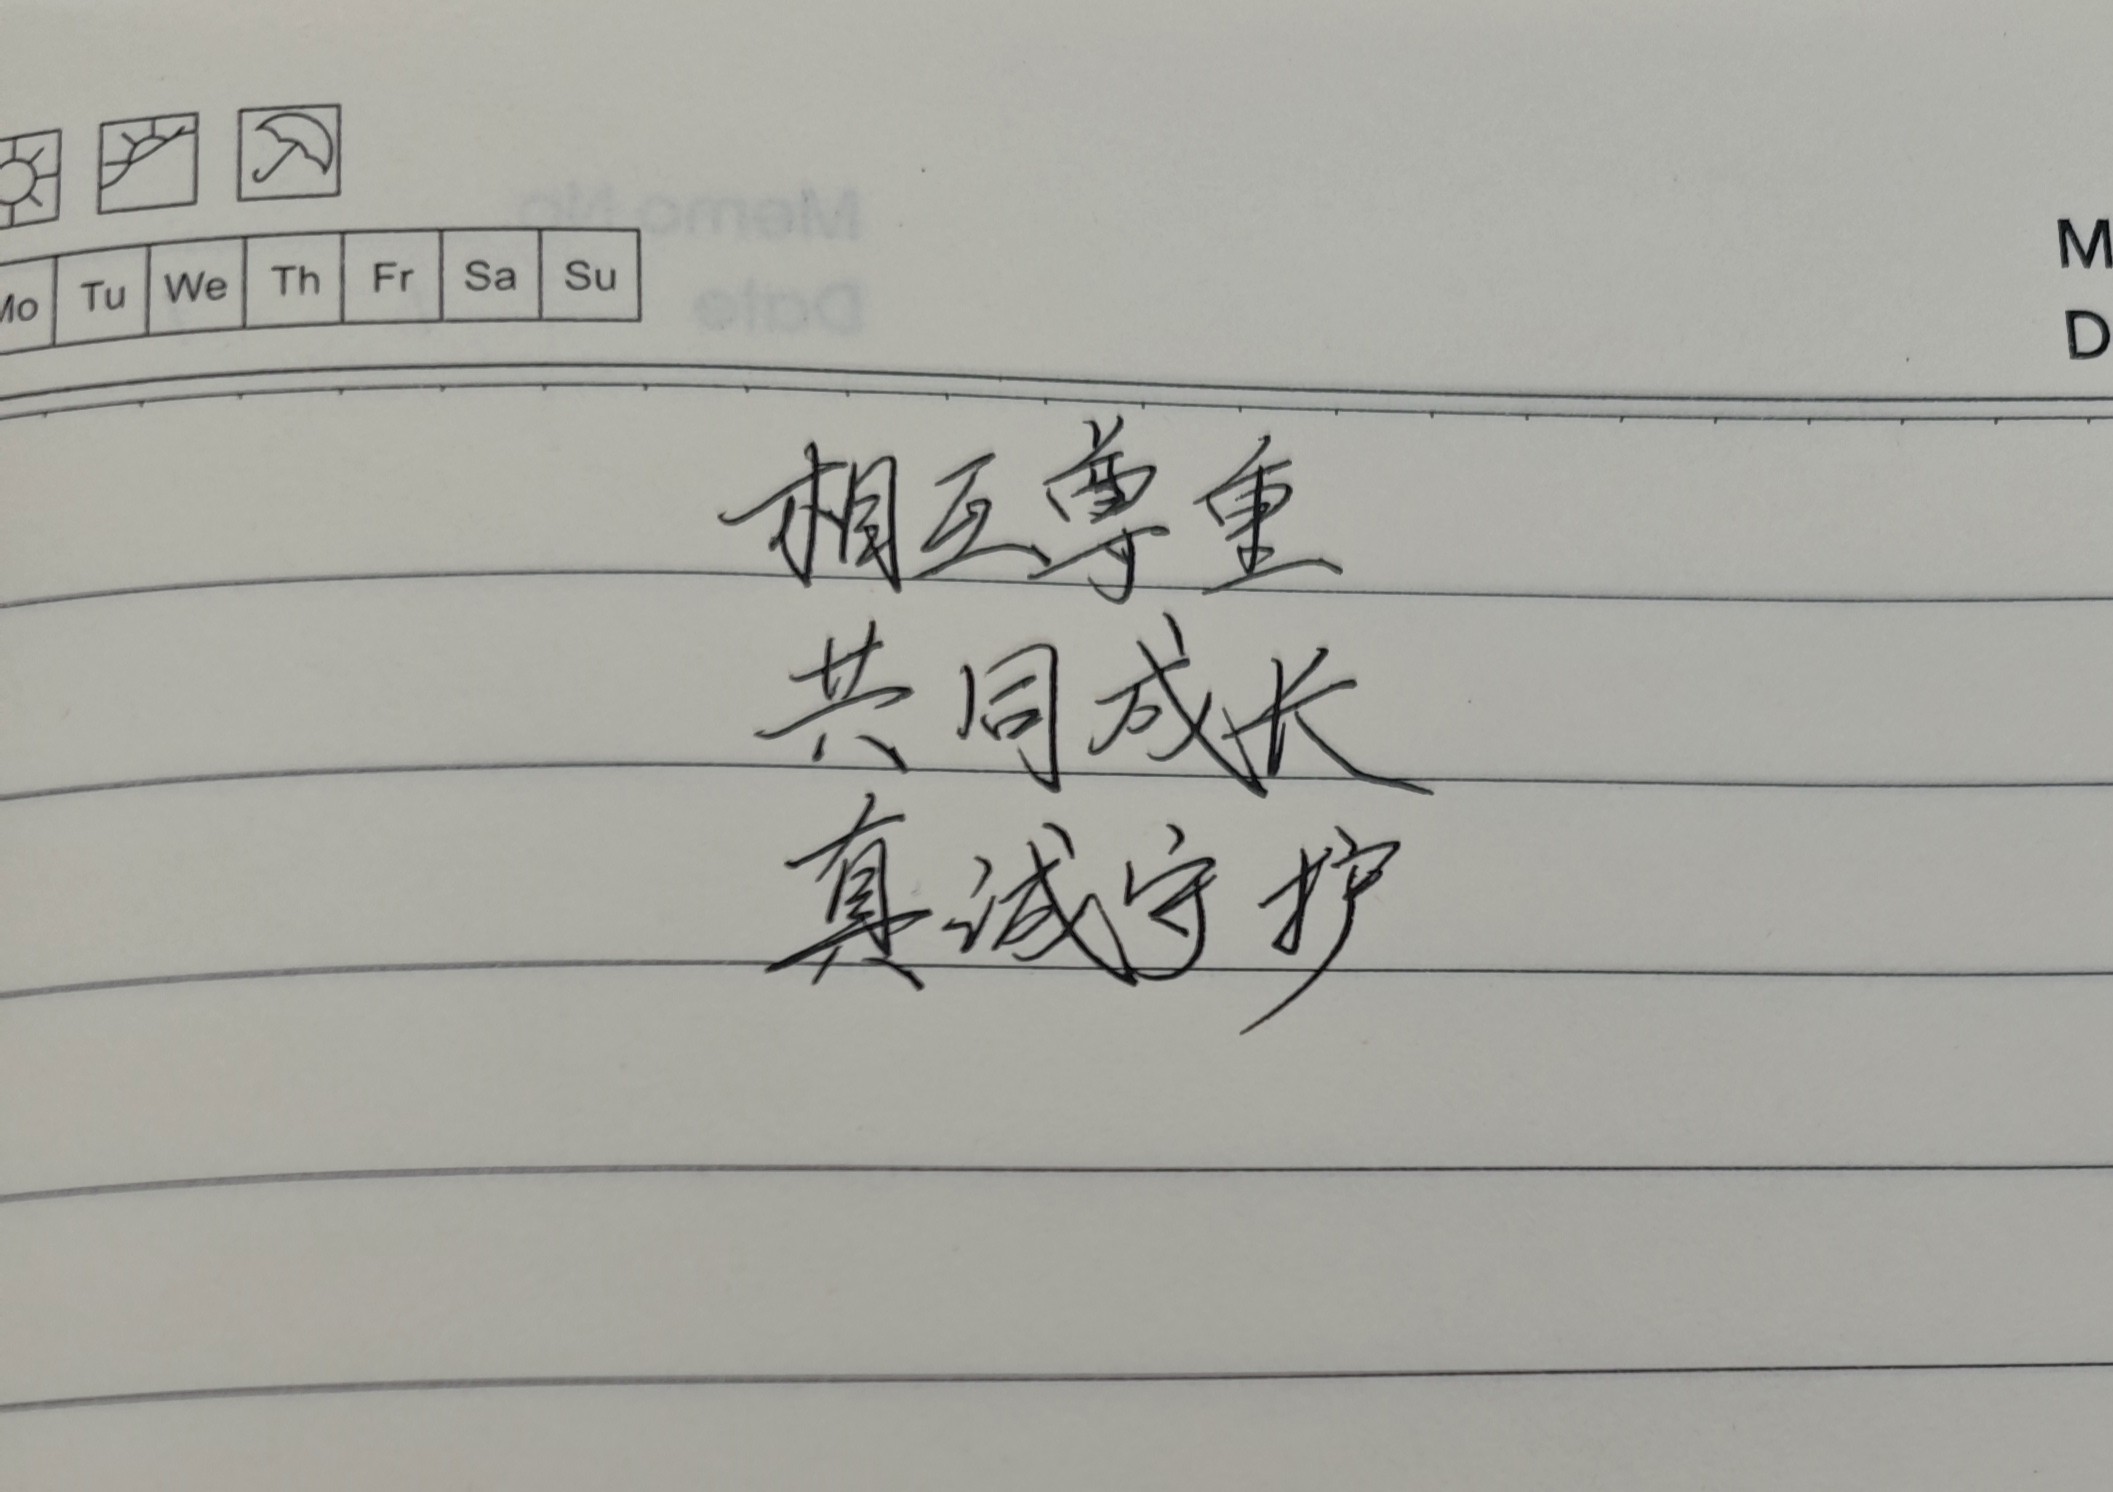 Mo Tu We Th Fr Sa Su
M
D
相互尊重
共同成长
真诚守护